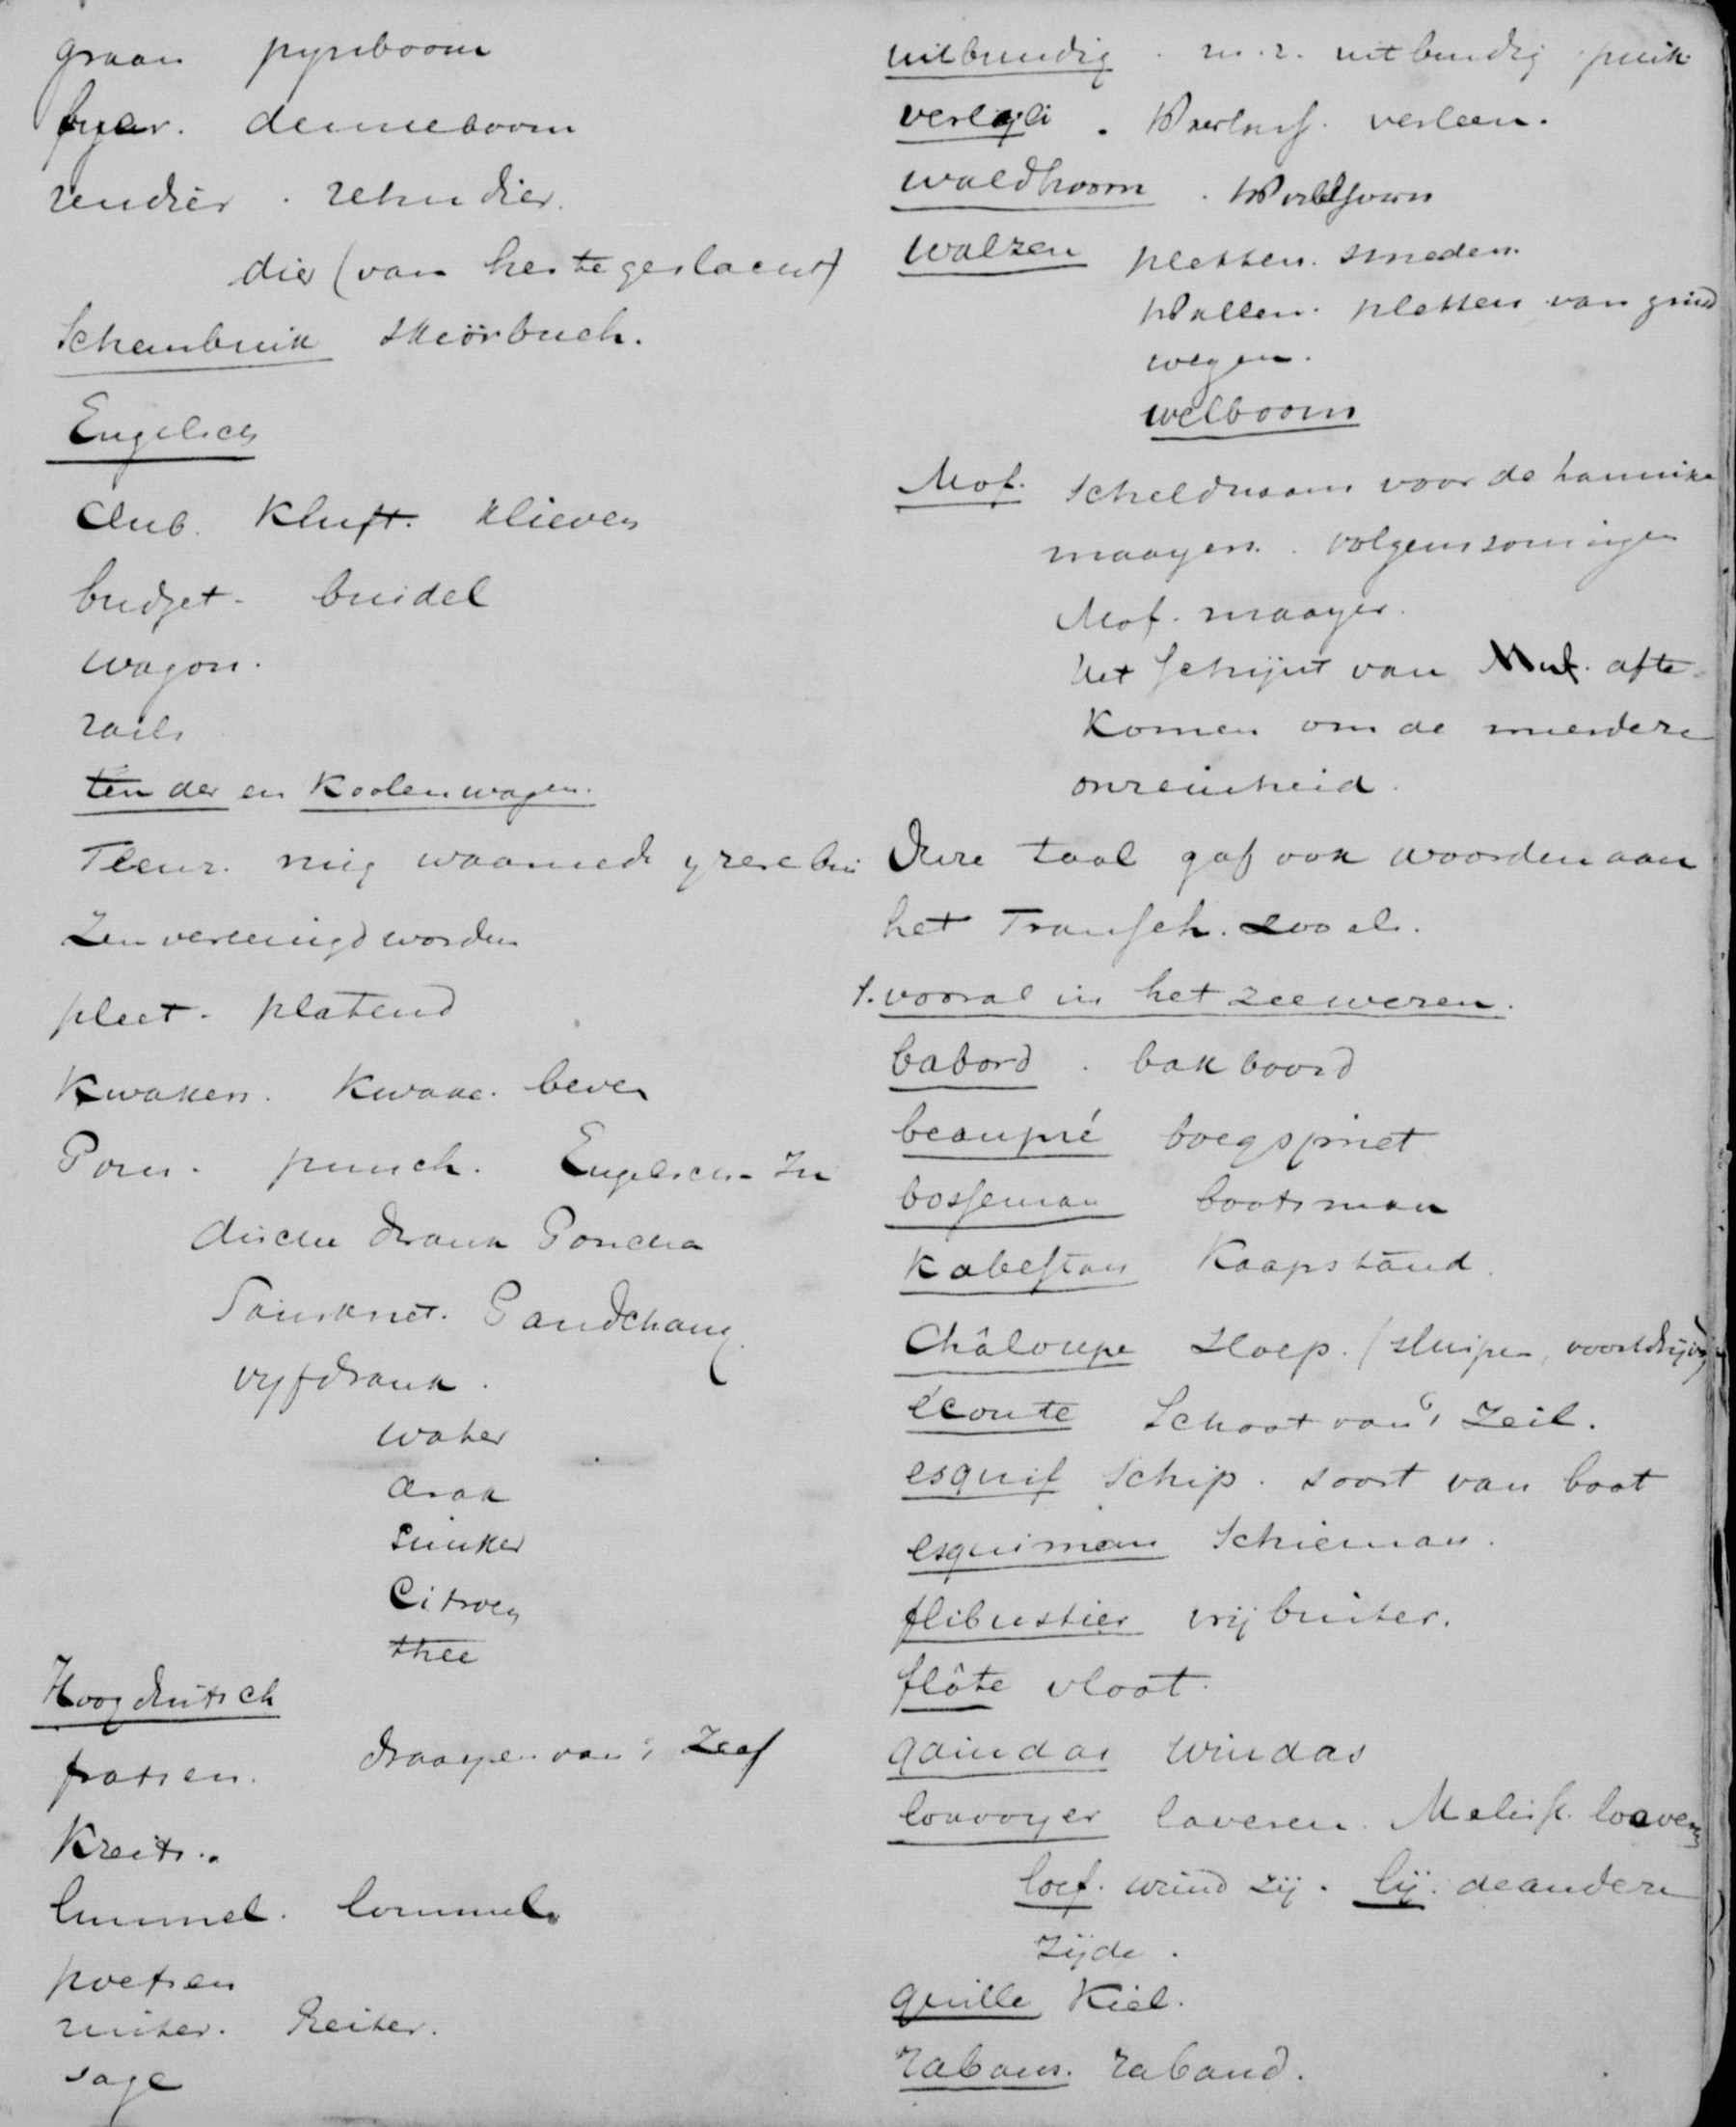 graan pynboom
fyer. denneboom
rendier . rehn dier.
die (van herte geslacht)
Scheurbuik skiörbuch.
Engelsch
Club. Kluft. klieven
budget - buidel
wagon.
rails
tender en Koolenwagen.
waarmede yzere bui
zen vereenigd worden
pleet - platend
Kwaken. Kwake. beven
Pons. punch. Engelsch - In
dische drank Poncha
Sanskriet. Pandchang.
vyfdrank.
water
arak
suiker
Citroen
thee
Hoogduitsch
fratsen. draayen van 't
Kreits.
lummel. lommel.
poetsen
ruiter. Reiter.
sage
uitbundig . uitbundig puik
. verleen.
waldhoorn . Waldhorn
walzen pletten. smeden.
Wallen. pletten van grind
wegen.
welboom
Mof. Scheldnaam voor de hannike
maayers. volgens somigen
Mof. maayer.
Het schijnt van Muf. afte
Komen om de meerdere
onreinheid.
Deze taal gaf ook woorden aan
het Transch. zooals.
1. vooral in het zeewezen.
babord . bakboord
beaupré boegspriet
bosseman bootsman
Kabestan Kaapstand.
Châloupe Sloep. (sluipen, voortdrijven)
écoute Schoot van 't Zeil.
esquif Schip. soort van boot
esquiman Schieman.
flibustier vrijbuiter.
flôte vloot.
gaindas windas
louvoyer laveren. loaveren
loef. wind zij. lij. de andere
zijde.
quille Kiel.
rabans. raband.